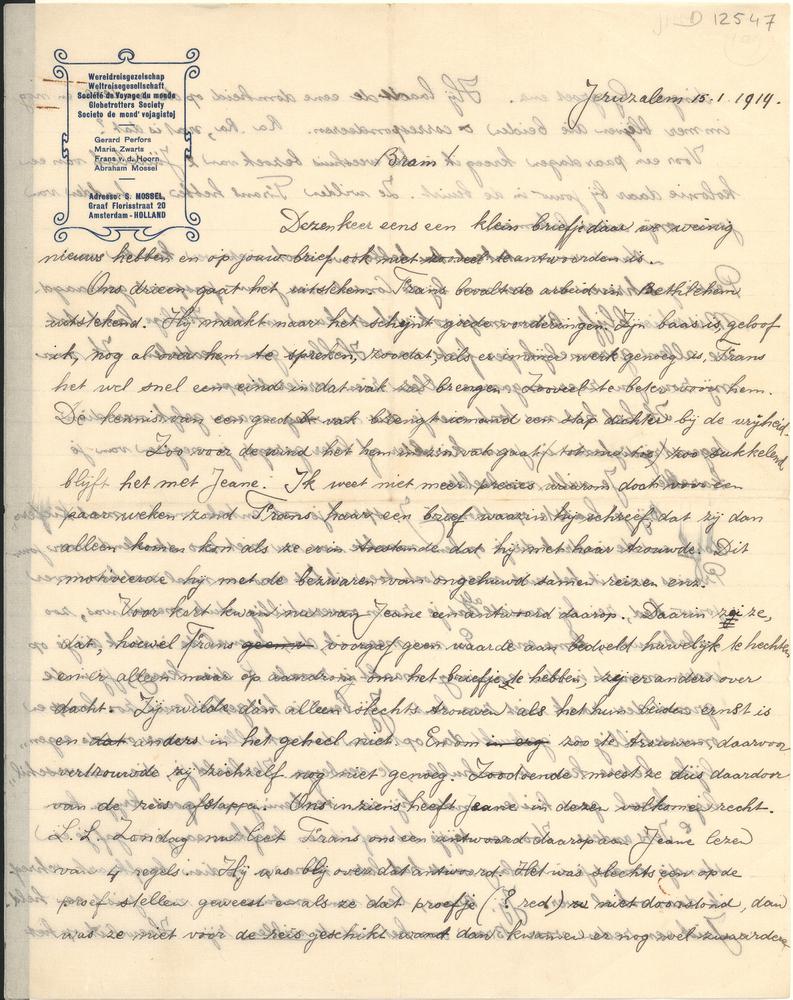 D 12547
Wereldreisgezelschap
Weltreisegesellschaft
Société de Voyage du monde
Globetrotters Society
Societo de mond' vojagistoj
Gerard Perfors
Maria Zwarts
Frans v. d. Hoorn
Abraham Mossel
Adresse: S. MOSSEL,
Graaf Florisstraat 20
Amsterdam - HOLLAND
Jeruzalem 15.1.1914.
Bram!
Dezen keer eens een klein briefje daar we weinig
nieuws hebben en op jouw brief ook niet zooveel te antwoorden is.
Ons drieen gaat het uitsteken. Frans bevalt de arbeid in Bethlehem
uitstekend. Hij maakt naar het schijnt goede vorderingen. Zijn baas is, geloof
ik, nog al over hem te spreken, zoodat, als er immer werk genoeg is, Frans
het wel snel een eind in dat vak zal brengen. Zooveel te beter voor hem.
De kennis van een goed vak brengt iemand een stap dichter bij de vrijheid.
Zoo voor de wind het hem in zijn vak gaat (tot nu toe) zoo sukkelend
blijft het met Jeane. Ik weet niet meer precies waarom doch voor een
paar weken zond Frans haar een brief waarin hij schreef, dat zij dan
alleen komen kon als ze er in toestemde dat hij met haar trouwde. Dit
motiveerde hij met de bezwaren van ongehuwd samen reizen enz.
Voor kort kwam nu van Jeane een antwoord daarop. Daarin zei ze,
dat, hoewel Frans geen voorgaf geen waarde aan bedoeld huwelijk te hechten
en er alleen maar op aandrong om het briefje te hebben, zij er anders over
dacht. Zij wilde dan alleen slechts trouwen als het hun beiden ernst is
en dat anders in het geheel niet. En om in erg zoo te trouwen, daarvoor
vertrouwde zij zichzelf nog niet genoeg. Zoodoende moest ze dus daardoor
van de reis afstappen. Ons inziens heeft Jeane in dezen volkomen recht.
L.L. Zondag nu leet Frans ons een antwoord daarop aan Jeane lezen
van 4 regels. Hij was blij over dat antwoord. Het was slechts een op de
proef stellen geweest en als ze dat proefje (? red) niet doorstond, dan
was ze niet voor de reis geschikt want dan kwamen er nog wel zwaardere